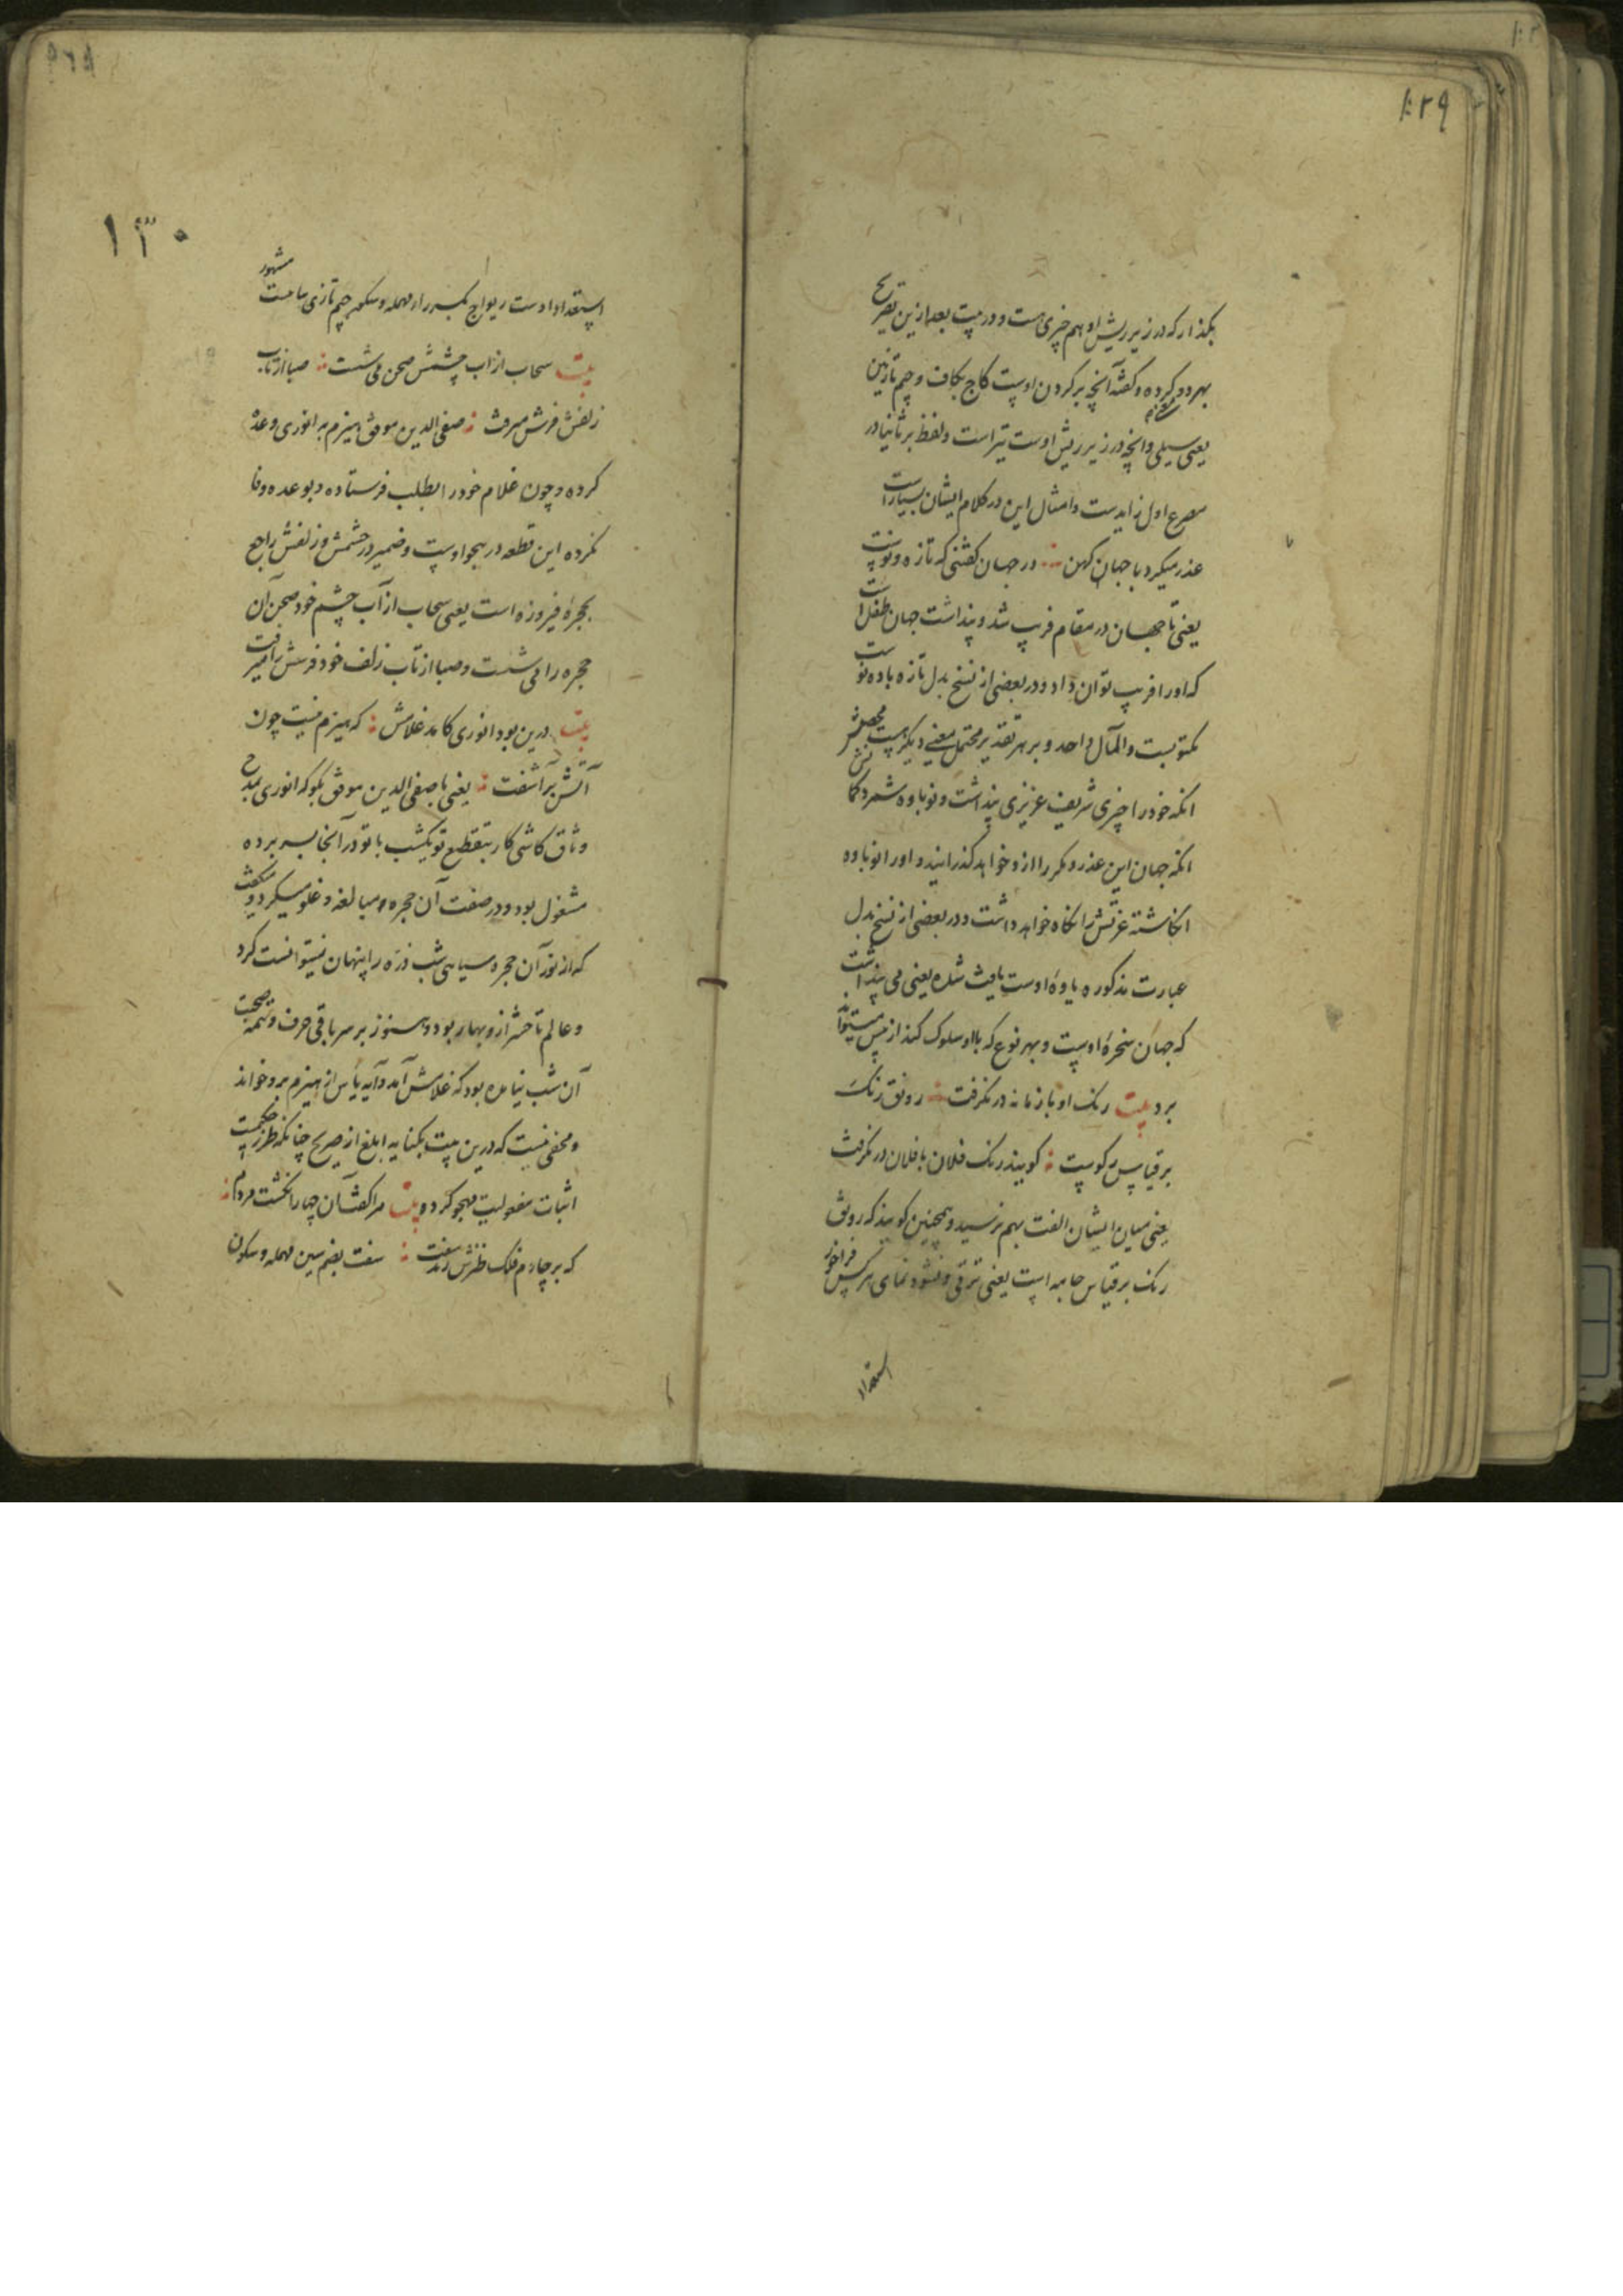 ۱۰۲۹
بکذار که در زیر ریش او هم چیزی هست و در بیت بعد ازین تصریح
بهر دو کرده و کفته آنچه بر کردن اوست کاج بکاف و جیم تازیین
یعنی سیلی و انچه در زیر ریش اوست تیز است و لفظ بر ثانیا در
مصرع اول زایدست و امثال این در کلام ایشان بسیار است
عذر میکرد با جهان کهن در جهان کفتنی که تازه و نوست
یعنی تا جهان در مقام فریب شد و پنداشت جهان طفل است
که او را فریب توان داد و در بعضی از نسخ بدل تازه باده نوست
مکتوبست و المآل واحد و بر هر تقدیر محتمل معنی دیکر هست محصلش
انکه خود را چیزی شریف عزیزی پنداشت و نوباوه شمرد کمانش
انکه جهان این عذر و مکر را ازو خواهد کذرانید و او را نوباوه
انکاشته عزتش را نکاه خواهد داشت و در بعضی از نسخ بدل
عبارت مذکوره یاوۀ اوست یافت شده یعنی می پنداشت
که جهان سخرۀ اوست و بهر نوع که با او سلوک کند از پیش میتواند
برد بیت رنک او با زمانه در نکرفت رونق رنک
بر قیاس رکوست کویند رنک فلان با فلان در نکرفت
یعنی میان ایشان الفت بهم نرسید و همچنین کویند که رونق
رنک بر قیاس جامه است یعنی ترقی و نشو و نمای هر کس فراخور
استعداد
۱۳۰
استعداد اوست ریواج بکسر راء مهمله و سکون جیم تازی مشهور
بیت سحاب از اب چشمش صحن می شست صبا از تاب
زلفش فرش میرفت صفی الدین موفق هیزم به انوری وعده
کرده و چون غلام خود را بطلب فرستاده و بوعده وفا
نکرده این قطعه در هجو اوست و ضمیر در چشمش و زلفش راجع
بحجرۀ فیروزه است یعنی سحاب از آب چشم خود صحن آن
حجره را می شست و صبا از تاب زلف خود فرش را میرفت
بیت درین بود انوری کامد غلامش که هیزم نیست چون
آتش بر آشفت یعنی با صفی الدین موفق بکو که انوری بمدح
وثاق کاشی کار بتقطیع تو یکشب با تو در آنجا بسر برده
مشغول بود و در صفت آن حجره مبالغه و غلو میکرد و میکفت
که از نور آن حجره سیاهی شب ذره را پنهان نمیتوانست کرد
و عالم تا حشر ازو بهار بود و هنوز بر سر باقی حرف و تتمه صحبت
آن شب نیامده بود که غلامش آمد و آیه یأس از هیزم برو خواند
و مخفی نیست که درین بیت بکنایه ابلغ از صریح چنانکه طرز حکیمست
اثبات مفعولیت مهجو کرده بیت مرا کفت آن چهار انکشت مردم
که بر چارم فلک طنزش زند سفت سفت بضم سین مهمله و سکون